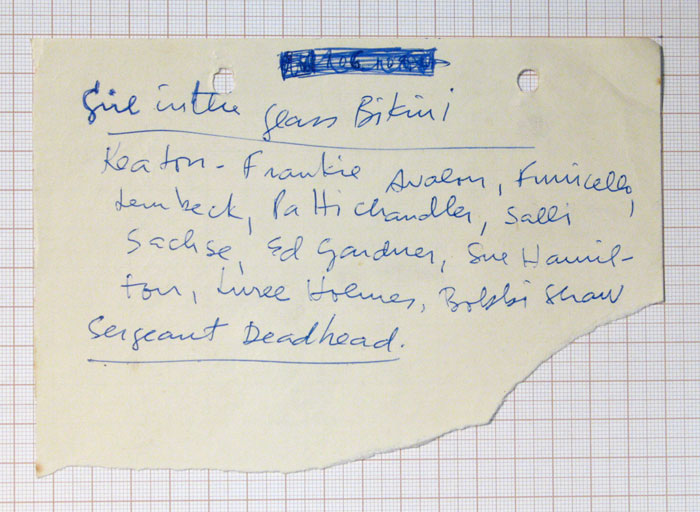 Girl in the glass Bikini
Keaton - Frankie Avalon, Funicello,
Lembeck, Patti Chandler, Salli
Sachse, Ed Gardner, Sue Hamil-
ton, Luree Holmes, Bobbi Shaw
Sergeant Deadhead.